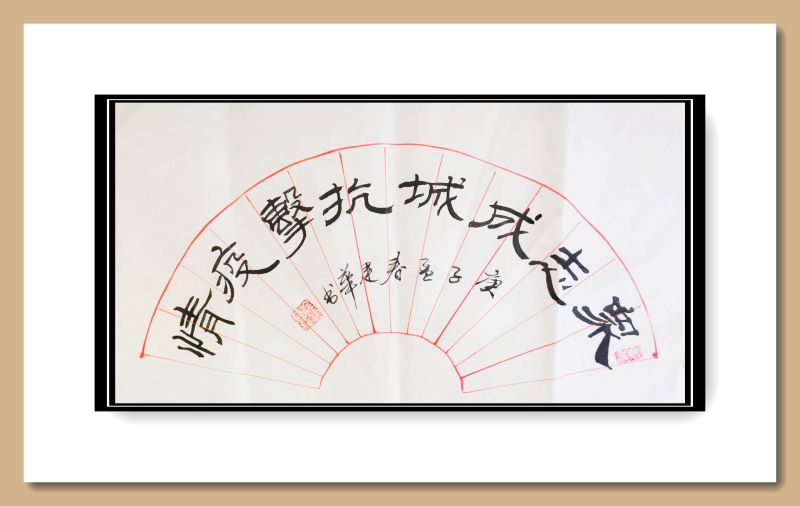 眾志成城抗擊疫情
庚子孟春建華书